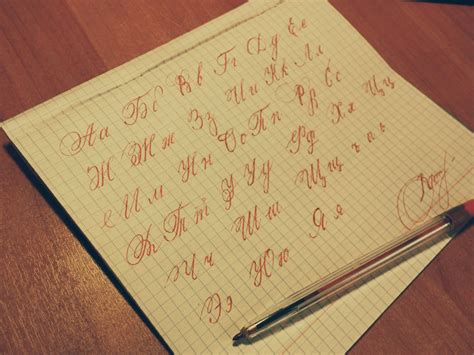 Аа Бб Вв Гг Дд Ее
Ж Жж Зз Ии Кк Лл
Мм Нн Оо Пп Рр Сс
Тт Уу Фф Хх Цц
Чч Шш Щщ ъ ь
Ээ Юю Яя